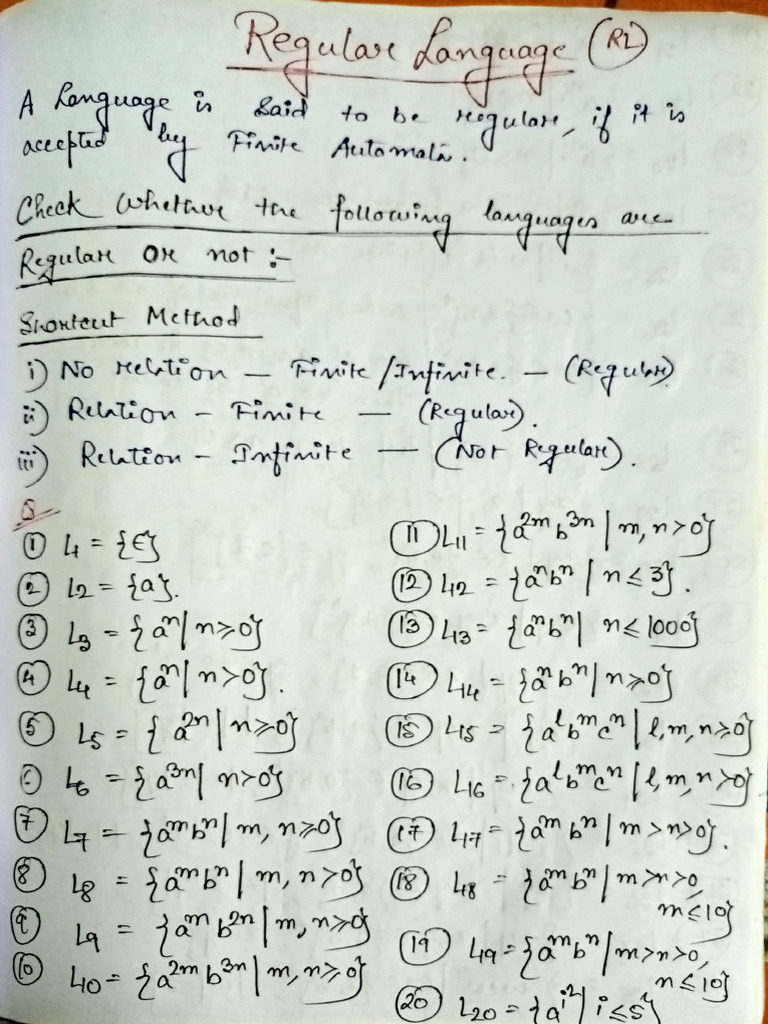 Regular Language (RL)
A Language is said to be regular, if it is
accepted by Finite Automata.
Check Whether the following languages are
Regular Or not :-
Shortcut Method
i) No relation – Finite / Infinite. – (Regular)
ii) Relation – Finite — (Regular).
iii) Relation – Infinite — (Not Regular).
Q
① L₁ = {ϵ}
② L₂ = {a}.
③ L₃ = {aⁿ | n⩾0}
④ L₄ = {aⁿ | n>0}.
⑤ L₅ = {a²ⁿ | n⩾0}
⑥ L₆ = {a³ⁿ | n>0}
⑦ L₇ = {aᵐbⁿ | m, n⩾0}
⑧ L₈ = {aᵐbⁿ | m, n>0}
⑨ L₉ = {aᵐb²ⁿ | m, n⩾0}
⑩ L₁₀ = {a²ᵐb³ⁿ | m, n⩾0}
⑪ L₁₁ = {a²ᵐb³ⁿ | m, n>0}
⑫ L₁₂ = {aⁿbⁿ | n ≤ 3}.
⑬ L₁₃ = {aⁿbⁿ | n ≤ 1000}
⑭ L₁₄ = {aⁿbⁿ | n⩾0}
⑮ L₁₅ = {aˡbᵐcⁿ | l, m, n⩾0}
⑯ L₁₆ = {aˡbᵐcⁿ | l, m, n>0}
⑰ L₁₇ = {aᵐbⁿ | m>n>0}.
⑱ L₁₈ = {aᵐbⁿ | m>n>0,
m≤10}
⑲ L₁₉ = {aᵐbⁿ | m>n>0,
n≤10}
⑳ L₂₀ = {a^i² | i≤5}